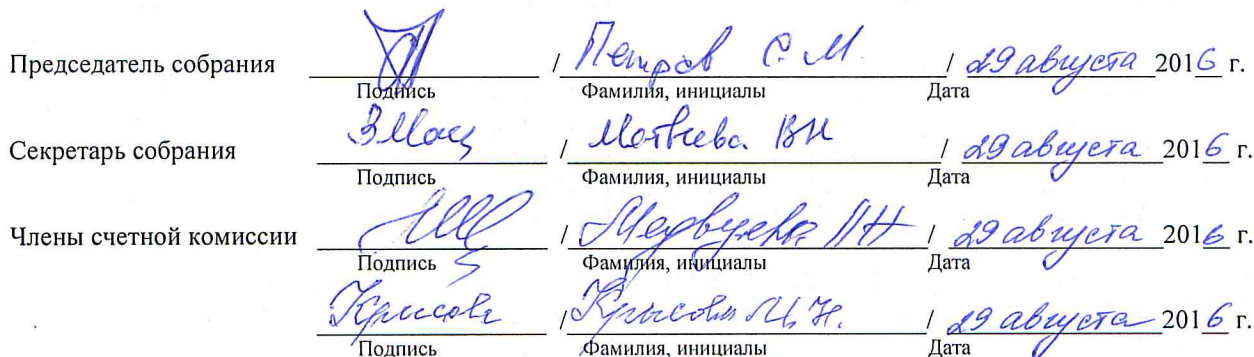 Председатель собрания / Петров С. М. / 29 августа 2016 г.
Подпись Фамилия, инициалы Дата
Секретарь собрания / Матвеева ВН / 29 августа 2016 г.
Подпись Фамилия, инициалы Дата
Члены счетной комиссии / / 29 августа 2016 г.
Подпись Фамилия, инициалы Дата
Крысова / Крысова М. Н. / 29 августа 2016 г.
Подпись Фамилия, инициалы Дата